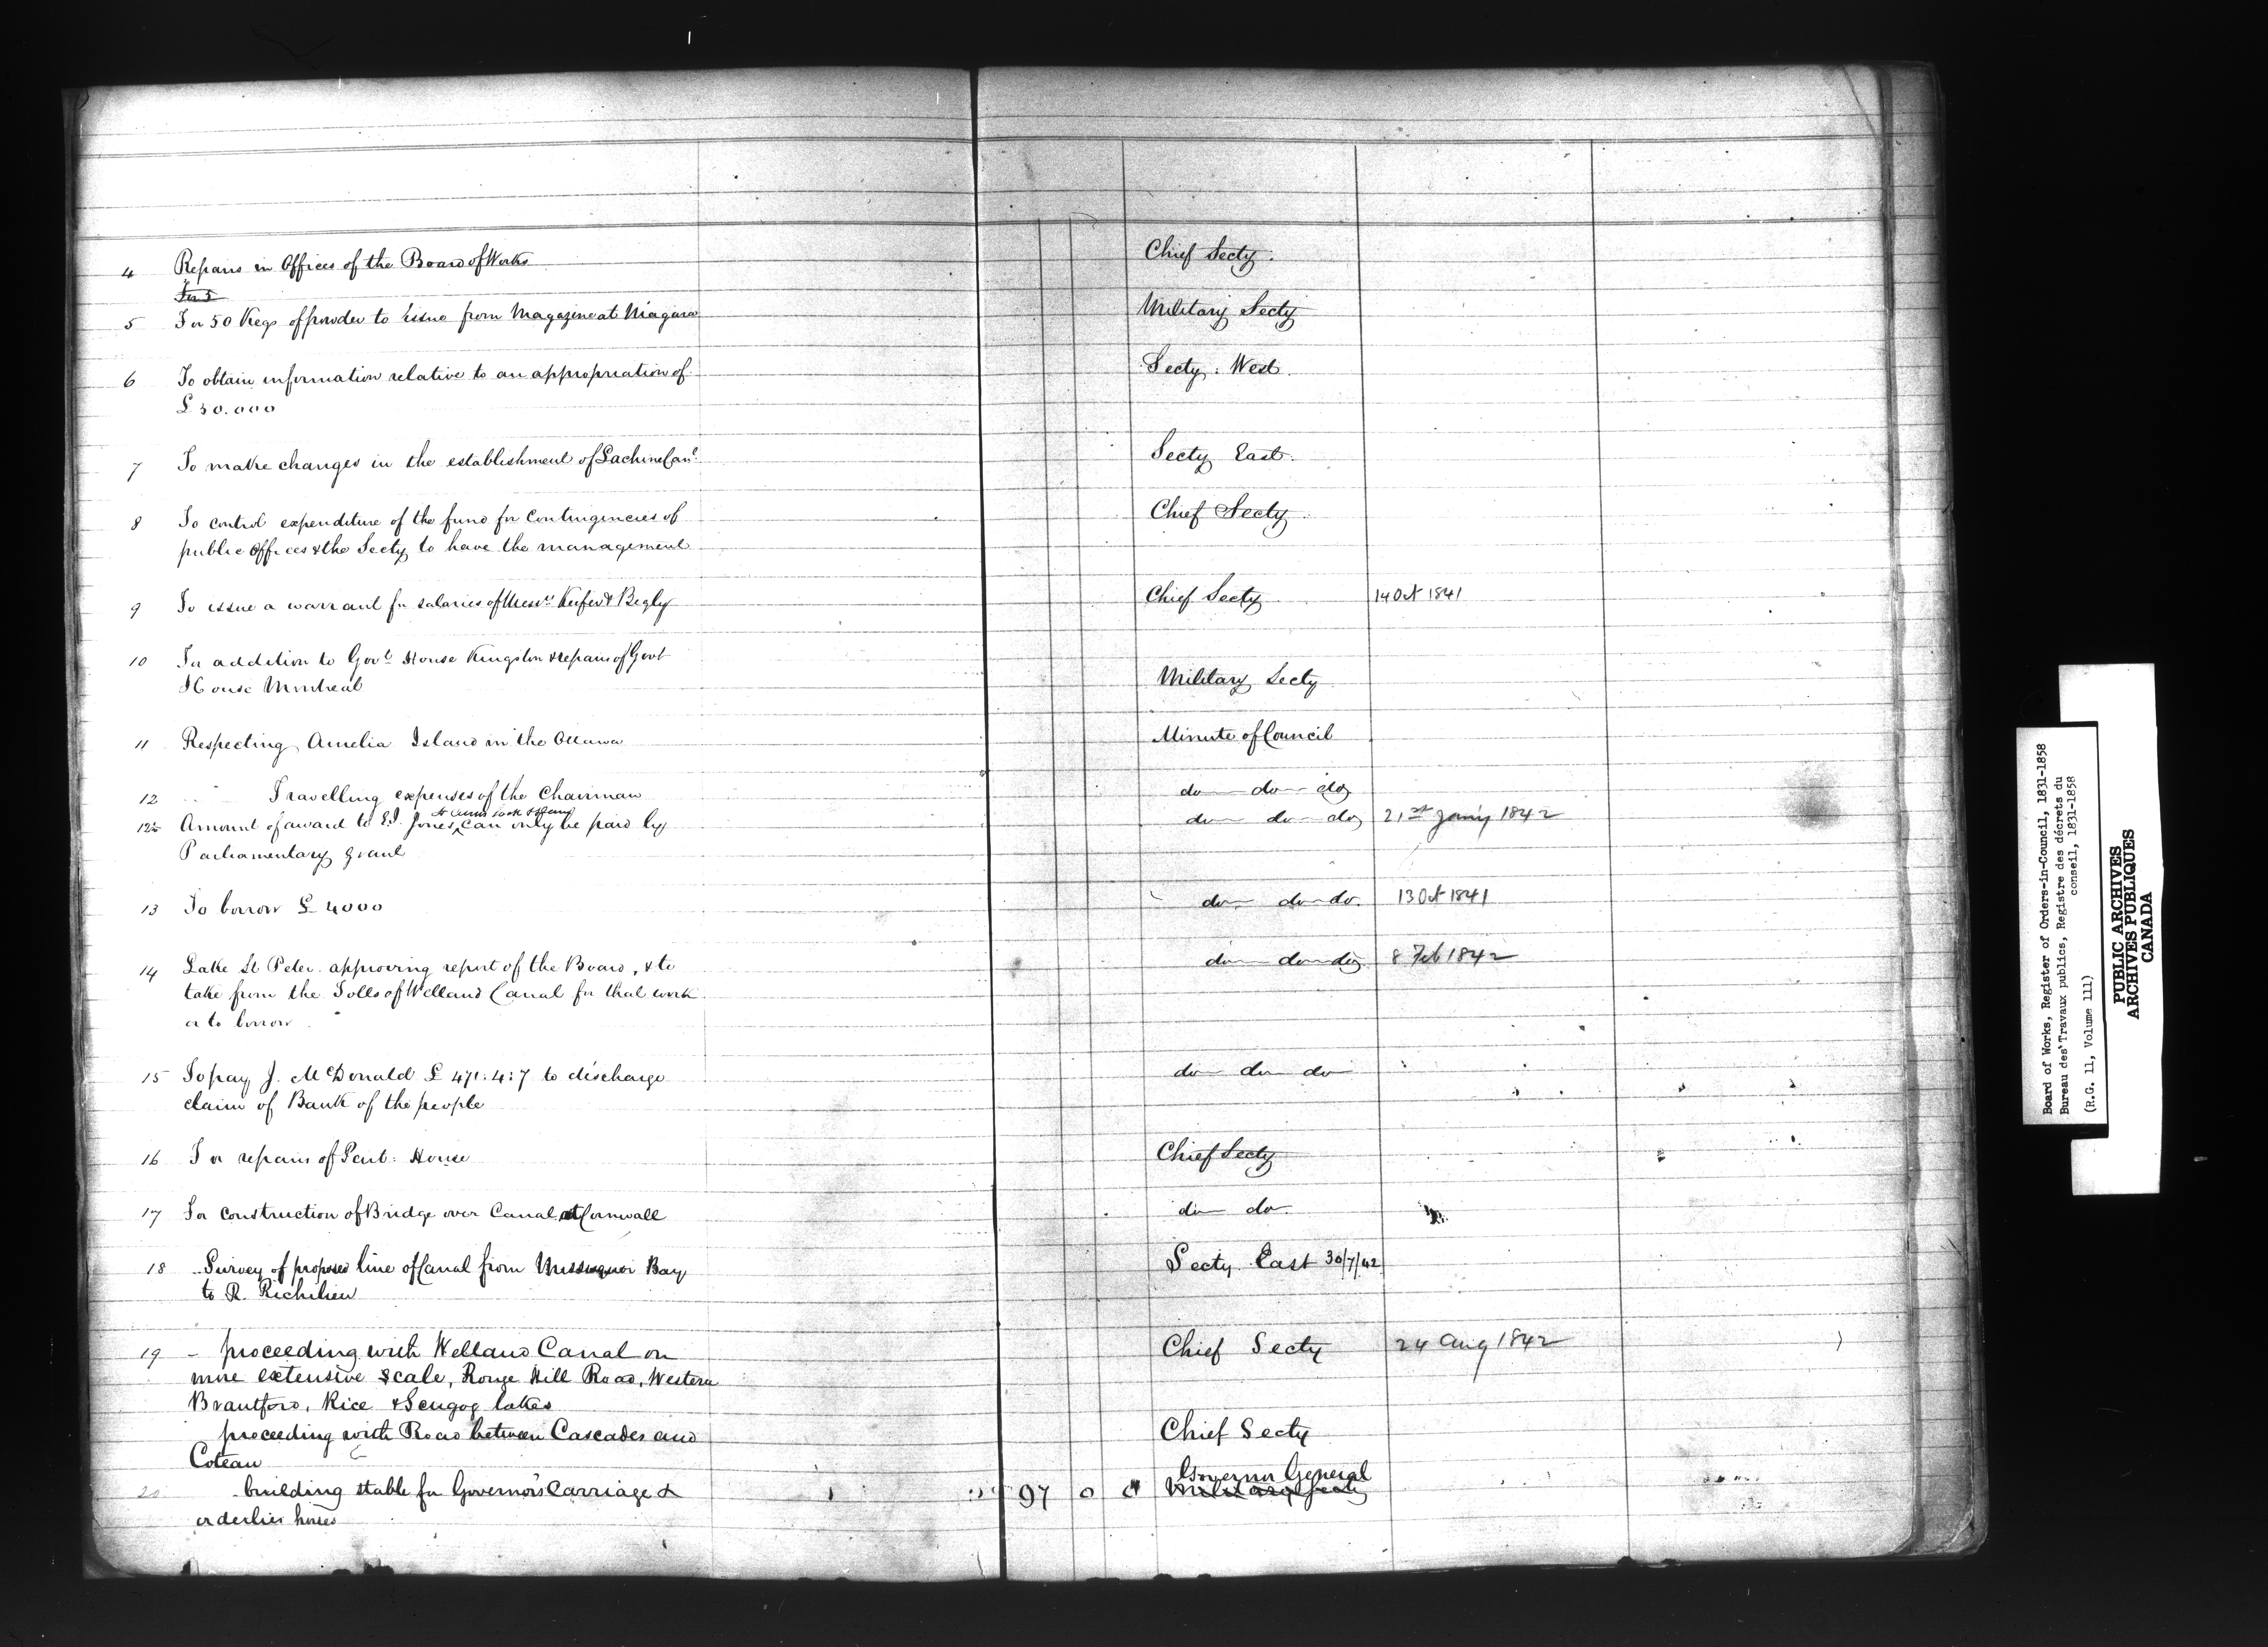 4 Repairs in Offices of the Board of Works Chief Secty.
5 For 50 Kegs of powder to issue from Magazine at Niagara Military Secty
6 To obtain information relative to an appropriation of Secty. West.
£30.000
7 To make changes in the establishment of Lachine Canl. Secty East.
8 To control expenditure of the fund for Contingencies of Chief Secty.
public Offices & the Secty to have the management
9 To issue a warrant for salaries of Messrs Keefer & Begly Chief Secty 14 Oct 1841
10 For addition to Govt House Kingston & repairs of Govt
House Montreal Military Secty
11 Respecting Amelia Island in the Ottawa Minute of Council
12 Travelling expenses of the Chairman do do do
12½ Amount of award to Jones can only be paid by do do do 21st Jany 1842
Parliamentary grant
13 To borrow £4000 do do do. 13 Oct 1841
14 Lake St Peter. approving report of the Board, & to do do do 8 Feb 1842
take from the Tolls of Welland Canal for that work
or to borrow
15 To pay J. McDonald £471:4:7 to discharge do do do
claim of Bank of the people
16 For repairs of Parlt: House Chief Secty
17 For construction of Bridge over Canal at Cornwall do do.
18 Survey of proposed line of Canal from Missisquoi Bay Secty East 30/7/42
to R. Richelieu
19 – proceeding with Welland Canal on Chief Secty 24 Aug 1842
more extensive scale, Rouge Hill Road, Western
Brantford, Rice & Scugog lakes
proceeding with Road between Cascades and Chief Secty
Coteau
Governor General
20 building stable for Governor's Carriage & 97 0 0 Military Secty
orderlies horses
Board of Works, Register of Orders-in-Council, 1831-1858
Bureau des Travaux publics, Registre des décrets du
conseil, 1831-1858
(R.G. 11, Volume 111)
PUBLIC ARCHIVES
ARCHIVES PUBLIQUES
CANADA